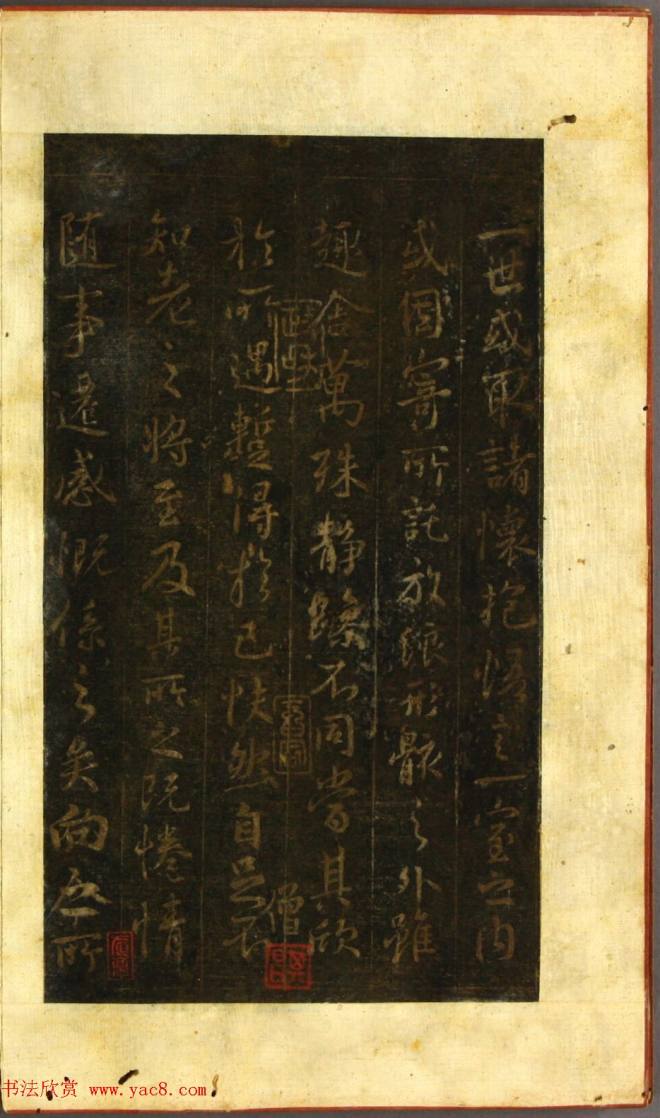 一世或取諸懷抱悟言一室之内
或因寄所託放浪形骸之外雖
趣舍萬殊静躁不同當其欣
於所遇蹔得於己怏然自足不
僧
知老之將至及其所之既惓情
随事遷感慨係之矣向之所
书法欣赏 www.yac8.com